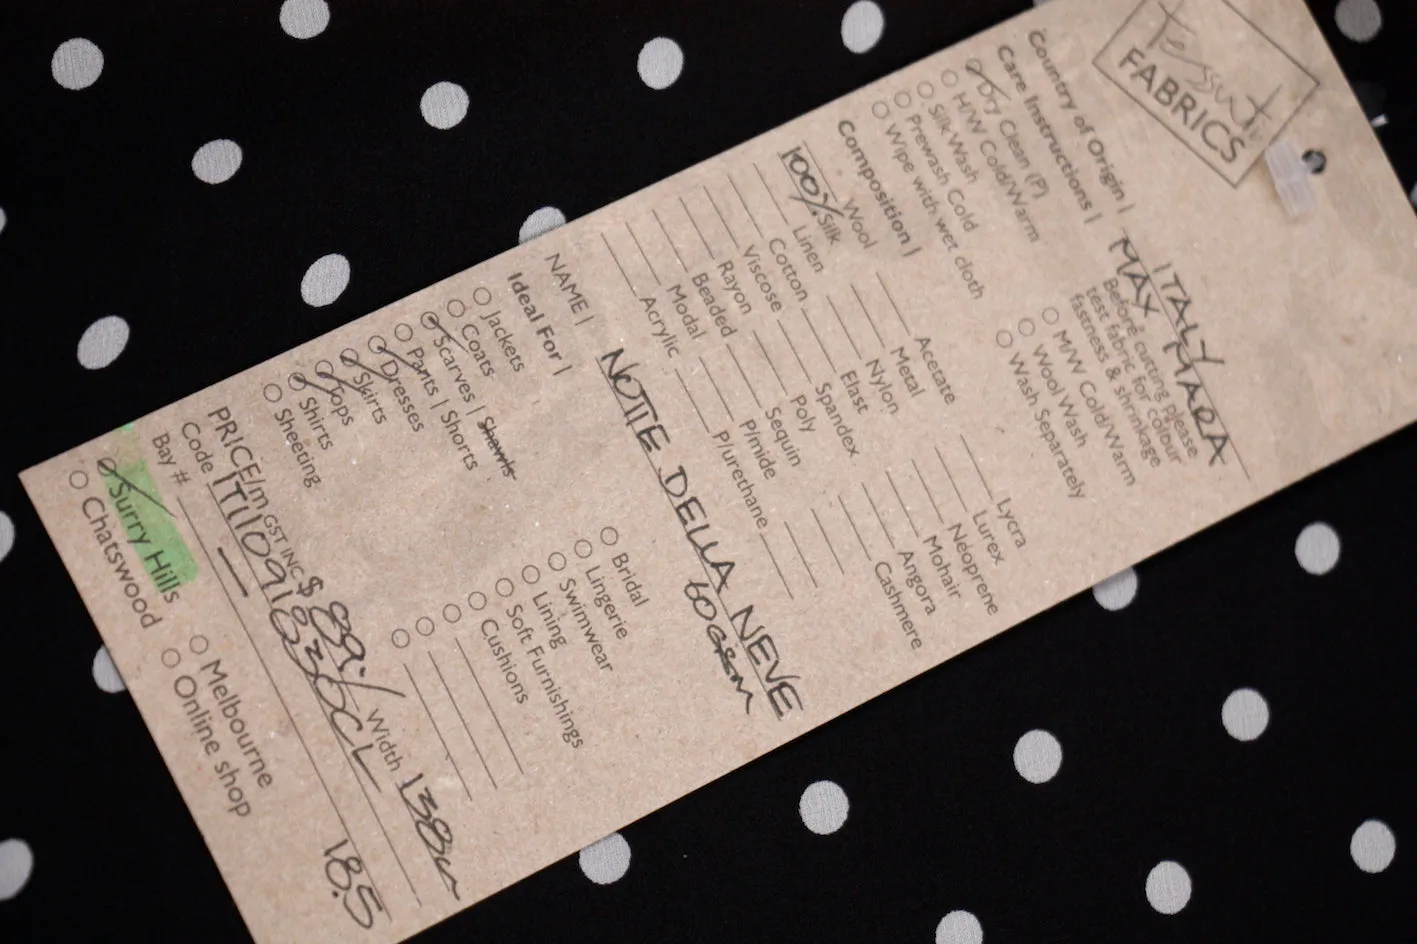 Tessuti
FABRICS
Country of Origin | ITALY
MAX MARA
Care Instructions | Before cutting please
test fabric for colour
fastness & shrinkage
Dry Clean (P)
H/W Cold/Warm
Silk Wash
Prewash Cold
Wipe with wet cloth
M/W Cold/Warm
Wool Wash
Wash Separately
Composition |
Wool
100% Silk
Linen
Cotton
Viscose
Rayon
Beaded
Modal
Acrylic
Acetate
Metal
Nylon
Elast
Spandex
Poly
Sequin
P/mide
P/urethane
Lycra
Lurex
Neoprene
Mohair
Angora
Cashmere
NAME | NOTTE DELLA NEVE
60GSM
Ideal For |
Jackets
Coats
Scarves | Shawls
Pants | Shorts
Dresses
Skirts
Tops
Shirts
Sheeting
Bridal
Lingerie
Swimwear
Lining
Soft Furnishings
Cushions
PRICE/m GST INC $ 89./ Width 138cm
Code
Bay #
18.5
Surry Hills
Chatswood
Melbourne
Online shop